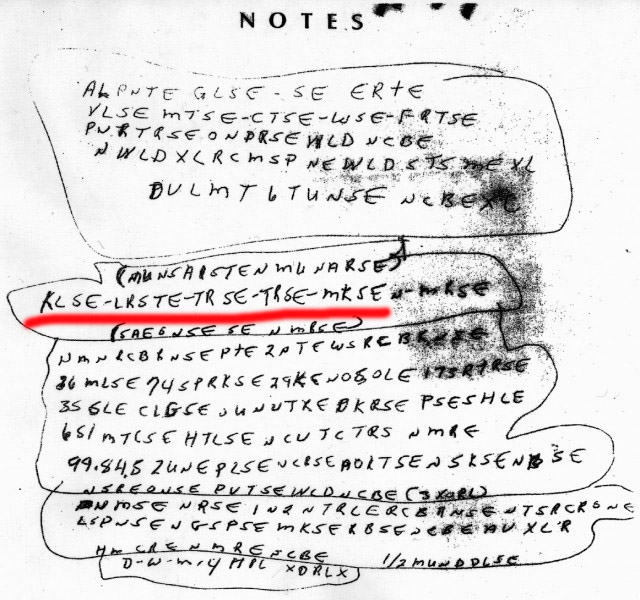 NOTES
ALPNTE GLSE-SE ERTE
VLSE MTSE-CTSE-WSE-FRTSE
PNRTRSEONDRSEWLD NCBE
NWLDXLRCMSP NEWLDSTSMEXL
DULMT6TUNSE NCBEXL
(MUNSAISTENMUNARSE)
KLSE-LRSTE-TRSE-TRSE-MKSEN-MRSE
(SAEGNSESE NMRSE)
NMNRCBRNSEPTE2PTEWSRCBRNSE
36MLSE74SPRKSE29KENOSOLE173RTRSE
35GLE CLGSE UNUTREDKRSE PSESHLE
651MTCSE HTLSE NCUTCTRS NMRE
99.84.52UNEPLSENCRSEAOLTSENSKSENBSE
NSREONSE PUTSEWLDNCBE (3XORL)
NMSE NRSE IN2NTRLERCBRNSE NTSRCRONE
LSPNSENGSPSE MKSERBSENCBEAUXLR
HMCRENMRENCBE 1/2MUNDDLSE
D-W-M-14 MIL XDRLX